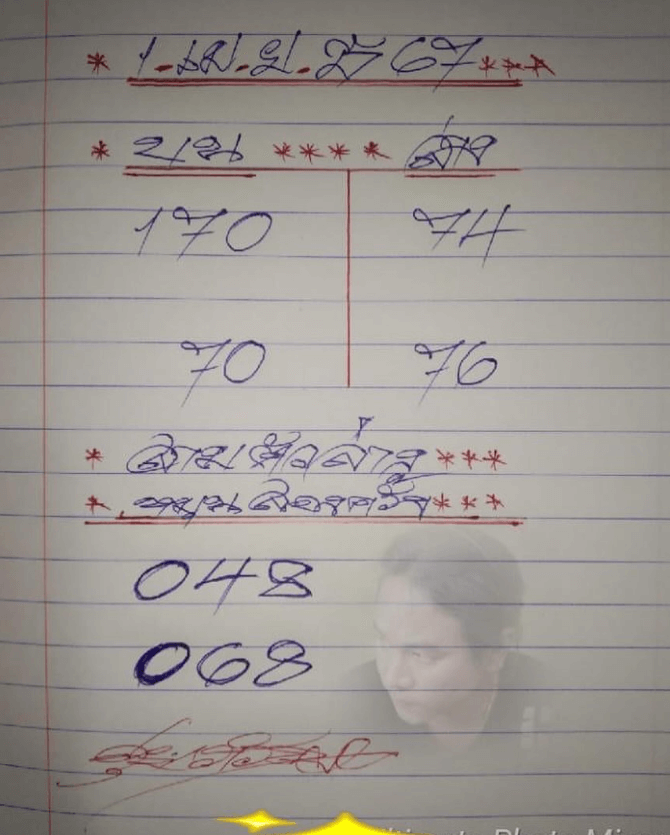 * 1.เม.ย.ปี 67 ***
* บน **** ล่าง
170 74
70 76
* สามตัวล่าง ***
* หมุนสองครั้ง ***
048
068